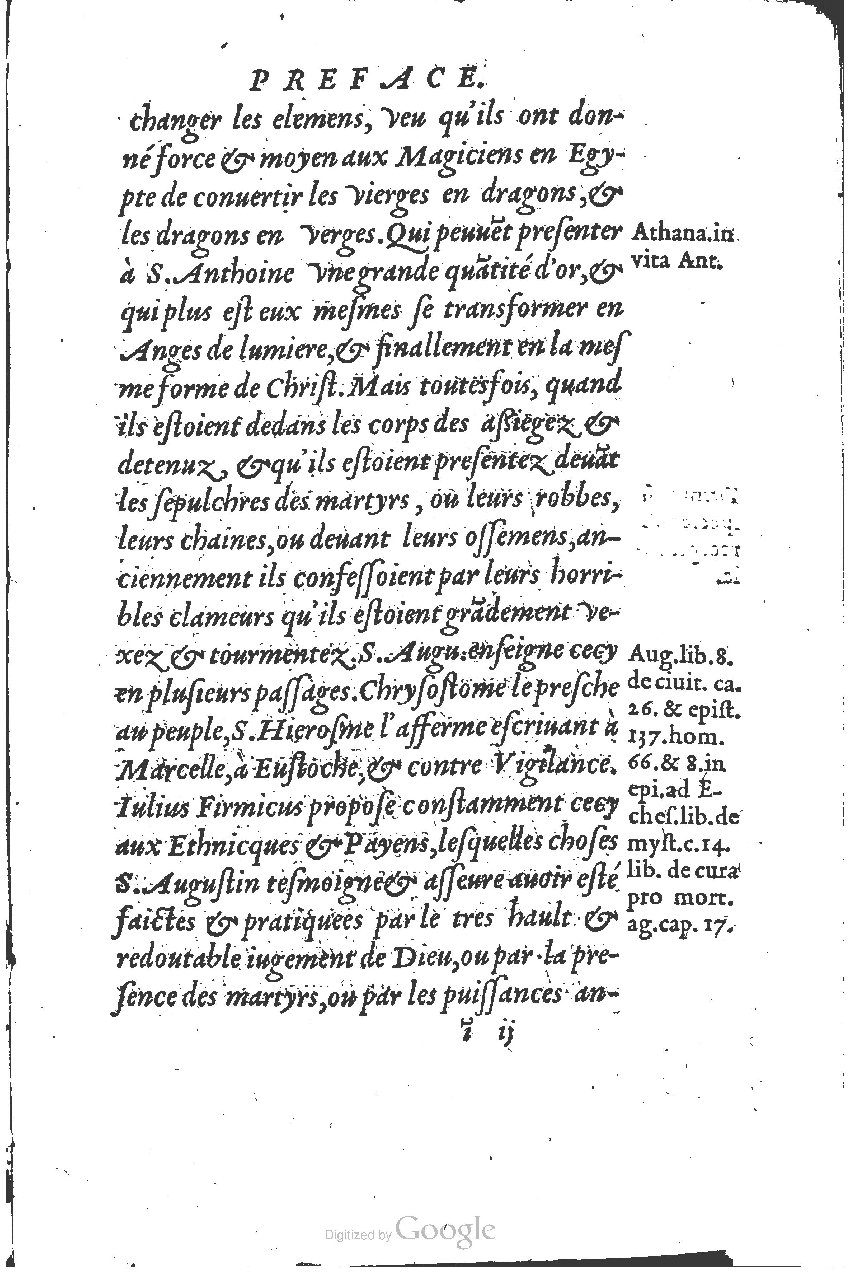 PREFACE.
changer les elemens, veu qu'ils ont don-
né force & moyen aux Magiciens en Egy-
pte de conuertir les vierges en dragons, &
les dragons en verges. Qui peuuẽt presenter
à S. Anthoine vne grande quãtité d'or, &
qui plus est eux mesmes se transformer en
Anges de lumiere, & finallement en la mes
me forme de Christ. Mais toutesfois, quand
ils estoient dedans les corps des assiegez &
detenuz, & qu'ils estoient presentez deuãt
les sepulchres des martyrs, ou leurs robbes,
leurs chaines, ou deuant leurs ossemens, an-
ciennement ils confessoient par leurs horri-
bles clameurs qu'ils estoient grãdement ve-
xez & tourmentez. S. Augu. enseigne cecy
en plusieurs passages. Chrysostome le presche
au peuple, S. Hierosme l'afferme escriuant à
Marcelle, à Eustoche, & contre Vigilance.
Iulius Firmicus propose constamment cecy
aux Ethnicques & Payens, lesquelles choses
S. Augustin tesmoigne & asseure auoir esté
faictes & pratiquees par le tres hault &
redoutable iugement de Dieu, ou par la pre-
sence des martyrs, ou par les puissances an-
ĩ ij
Athana. in
vita Ant.
Aug. lib. 8.
de ciuit. ca.
26. & epist.
137. hom.
66. & 8. in
epi. ad E-
ches. lib. de
myst. c. 14.
lib. de cura
pro mort.
ag. cap. 17.
Digitized by Google